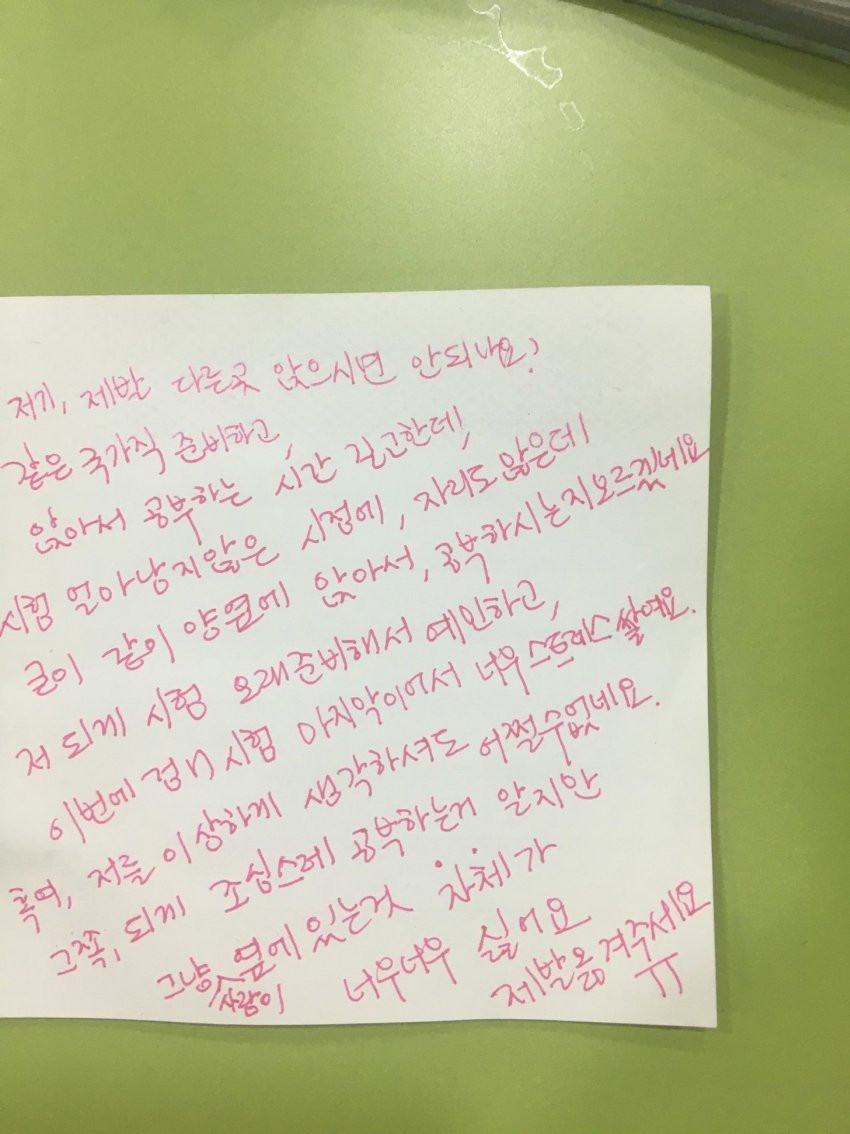 저기, 제발 다른곳 앉으시면 안되나요?
같은 국가직 준비하고,
앉아서 공부하는 시간 길고한데,
시험 얼마남지않은 시점에, 자리도 많은데
굳이 같이 양옆에 앉아서, 공부하시는지모르겠네요
저 되게 시험 오래준비해서 예민하고,
이번에 시험 마지막이어서 너무 스트레스 쌓여요.
혹여, 저를 이상하게 생각하셔도 어쩔수없네요.
그쪽, 되게 조심스레 공부하는거 알지만
그냥 사람이 옆에 있는것 자체가
너무너무 싫어요
제발옮겨주세요
ㅠ